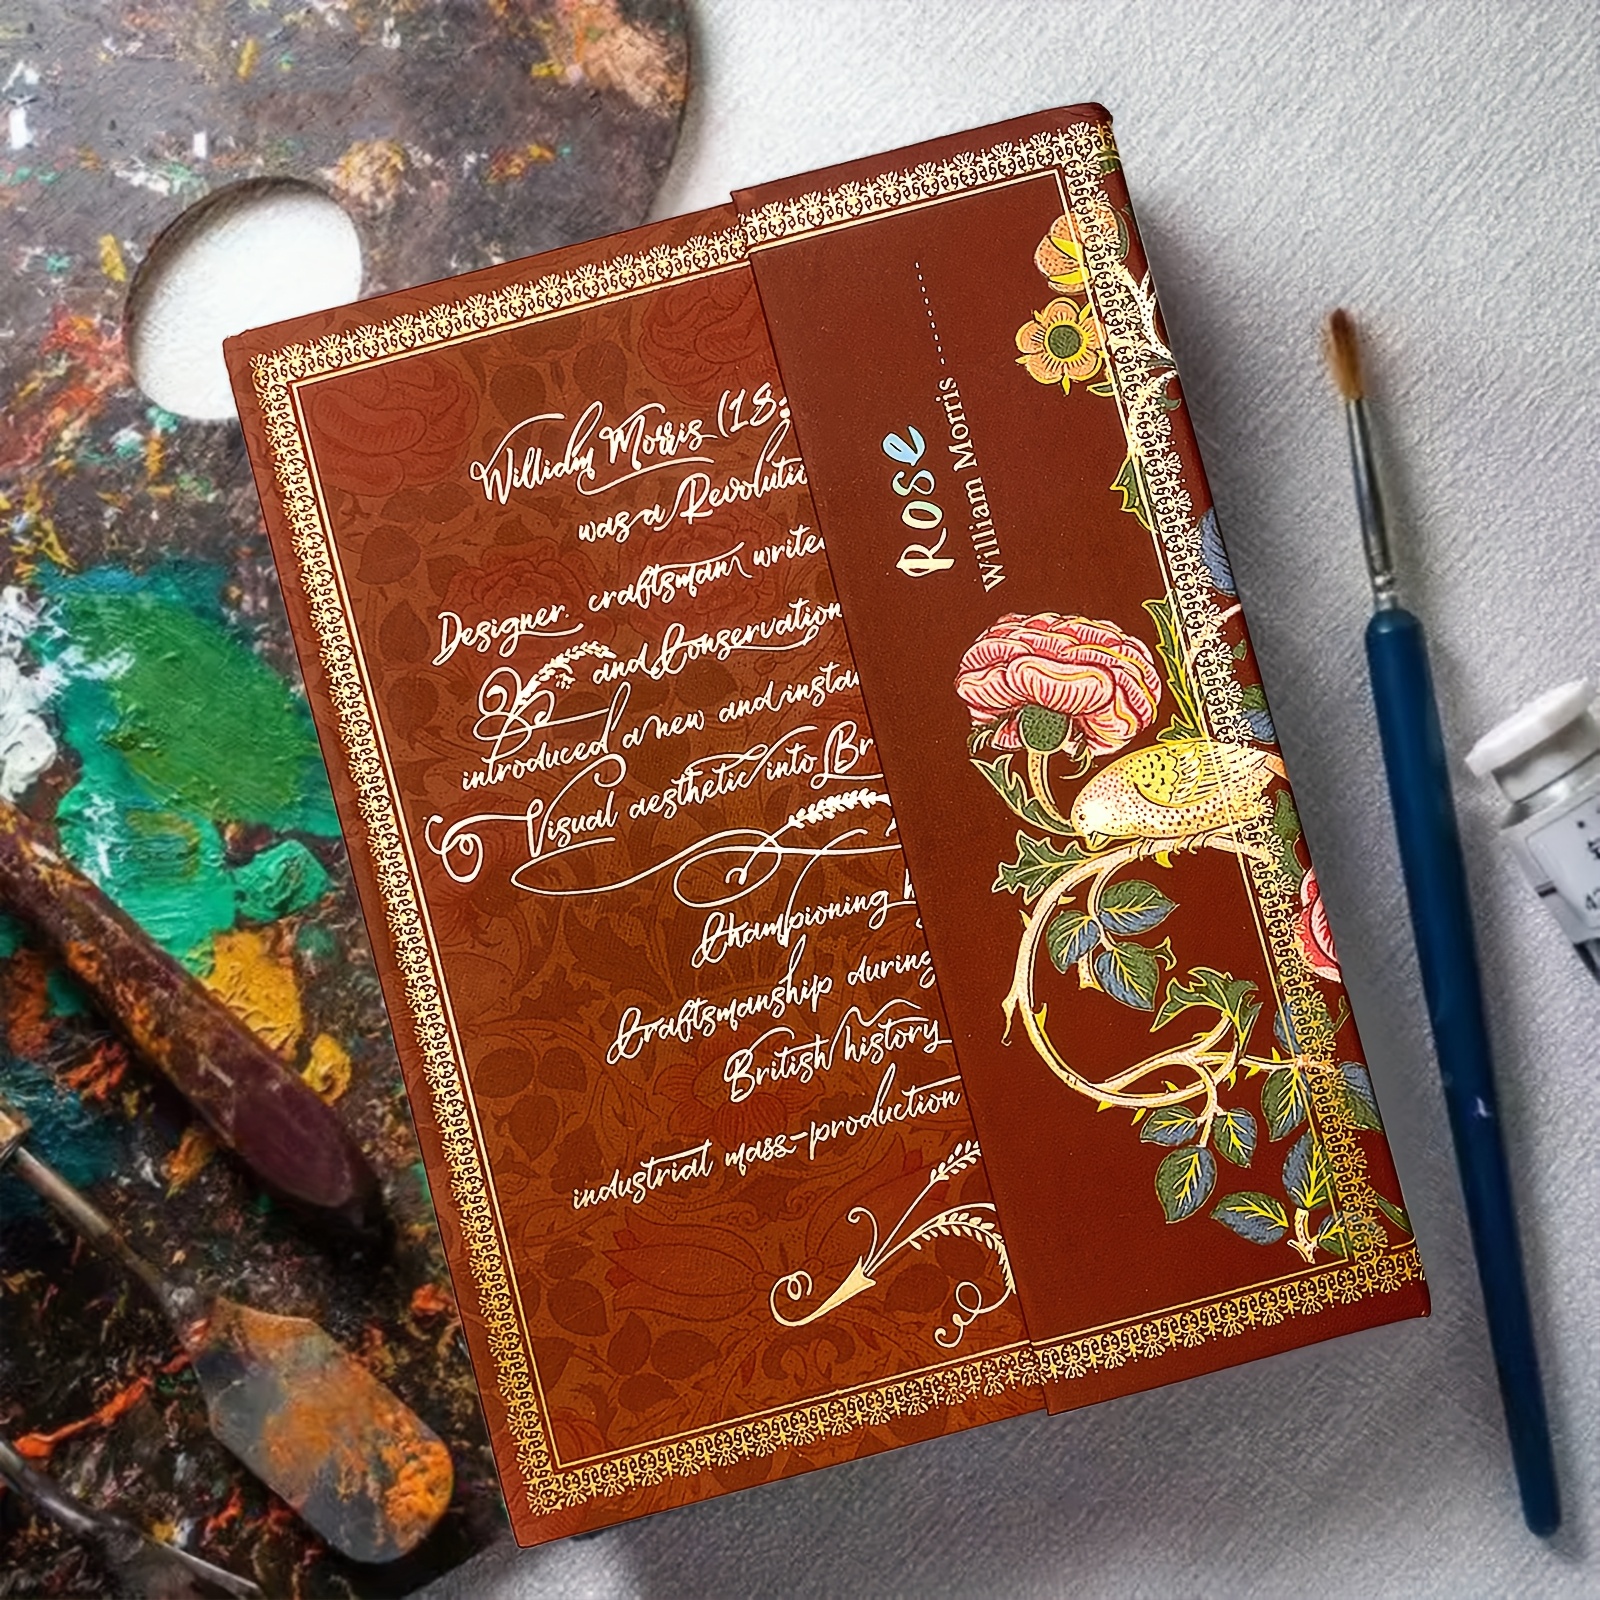 William Morris (18
was a Revoluti
Designer. craftsman writer
and Conservation
introduced a new and insta
Visual aesthetic into Br
Championing h
Craftsmanship during
British history
industrial mass-production
Rose
William Morris